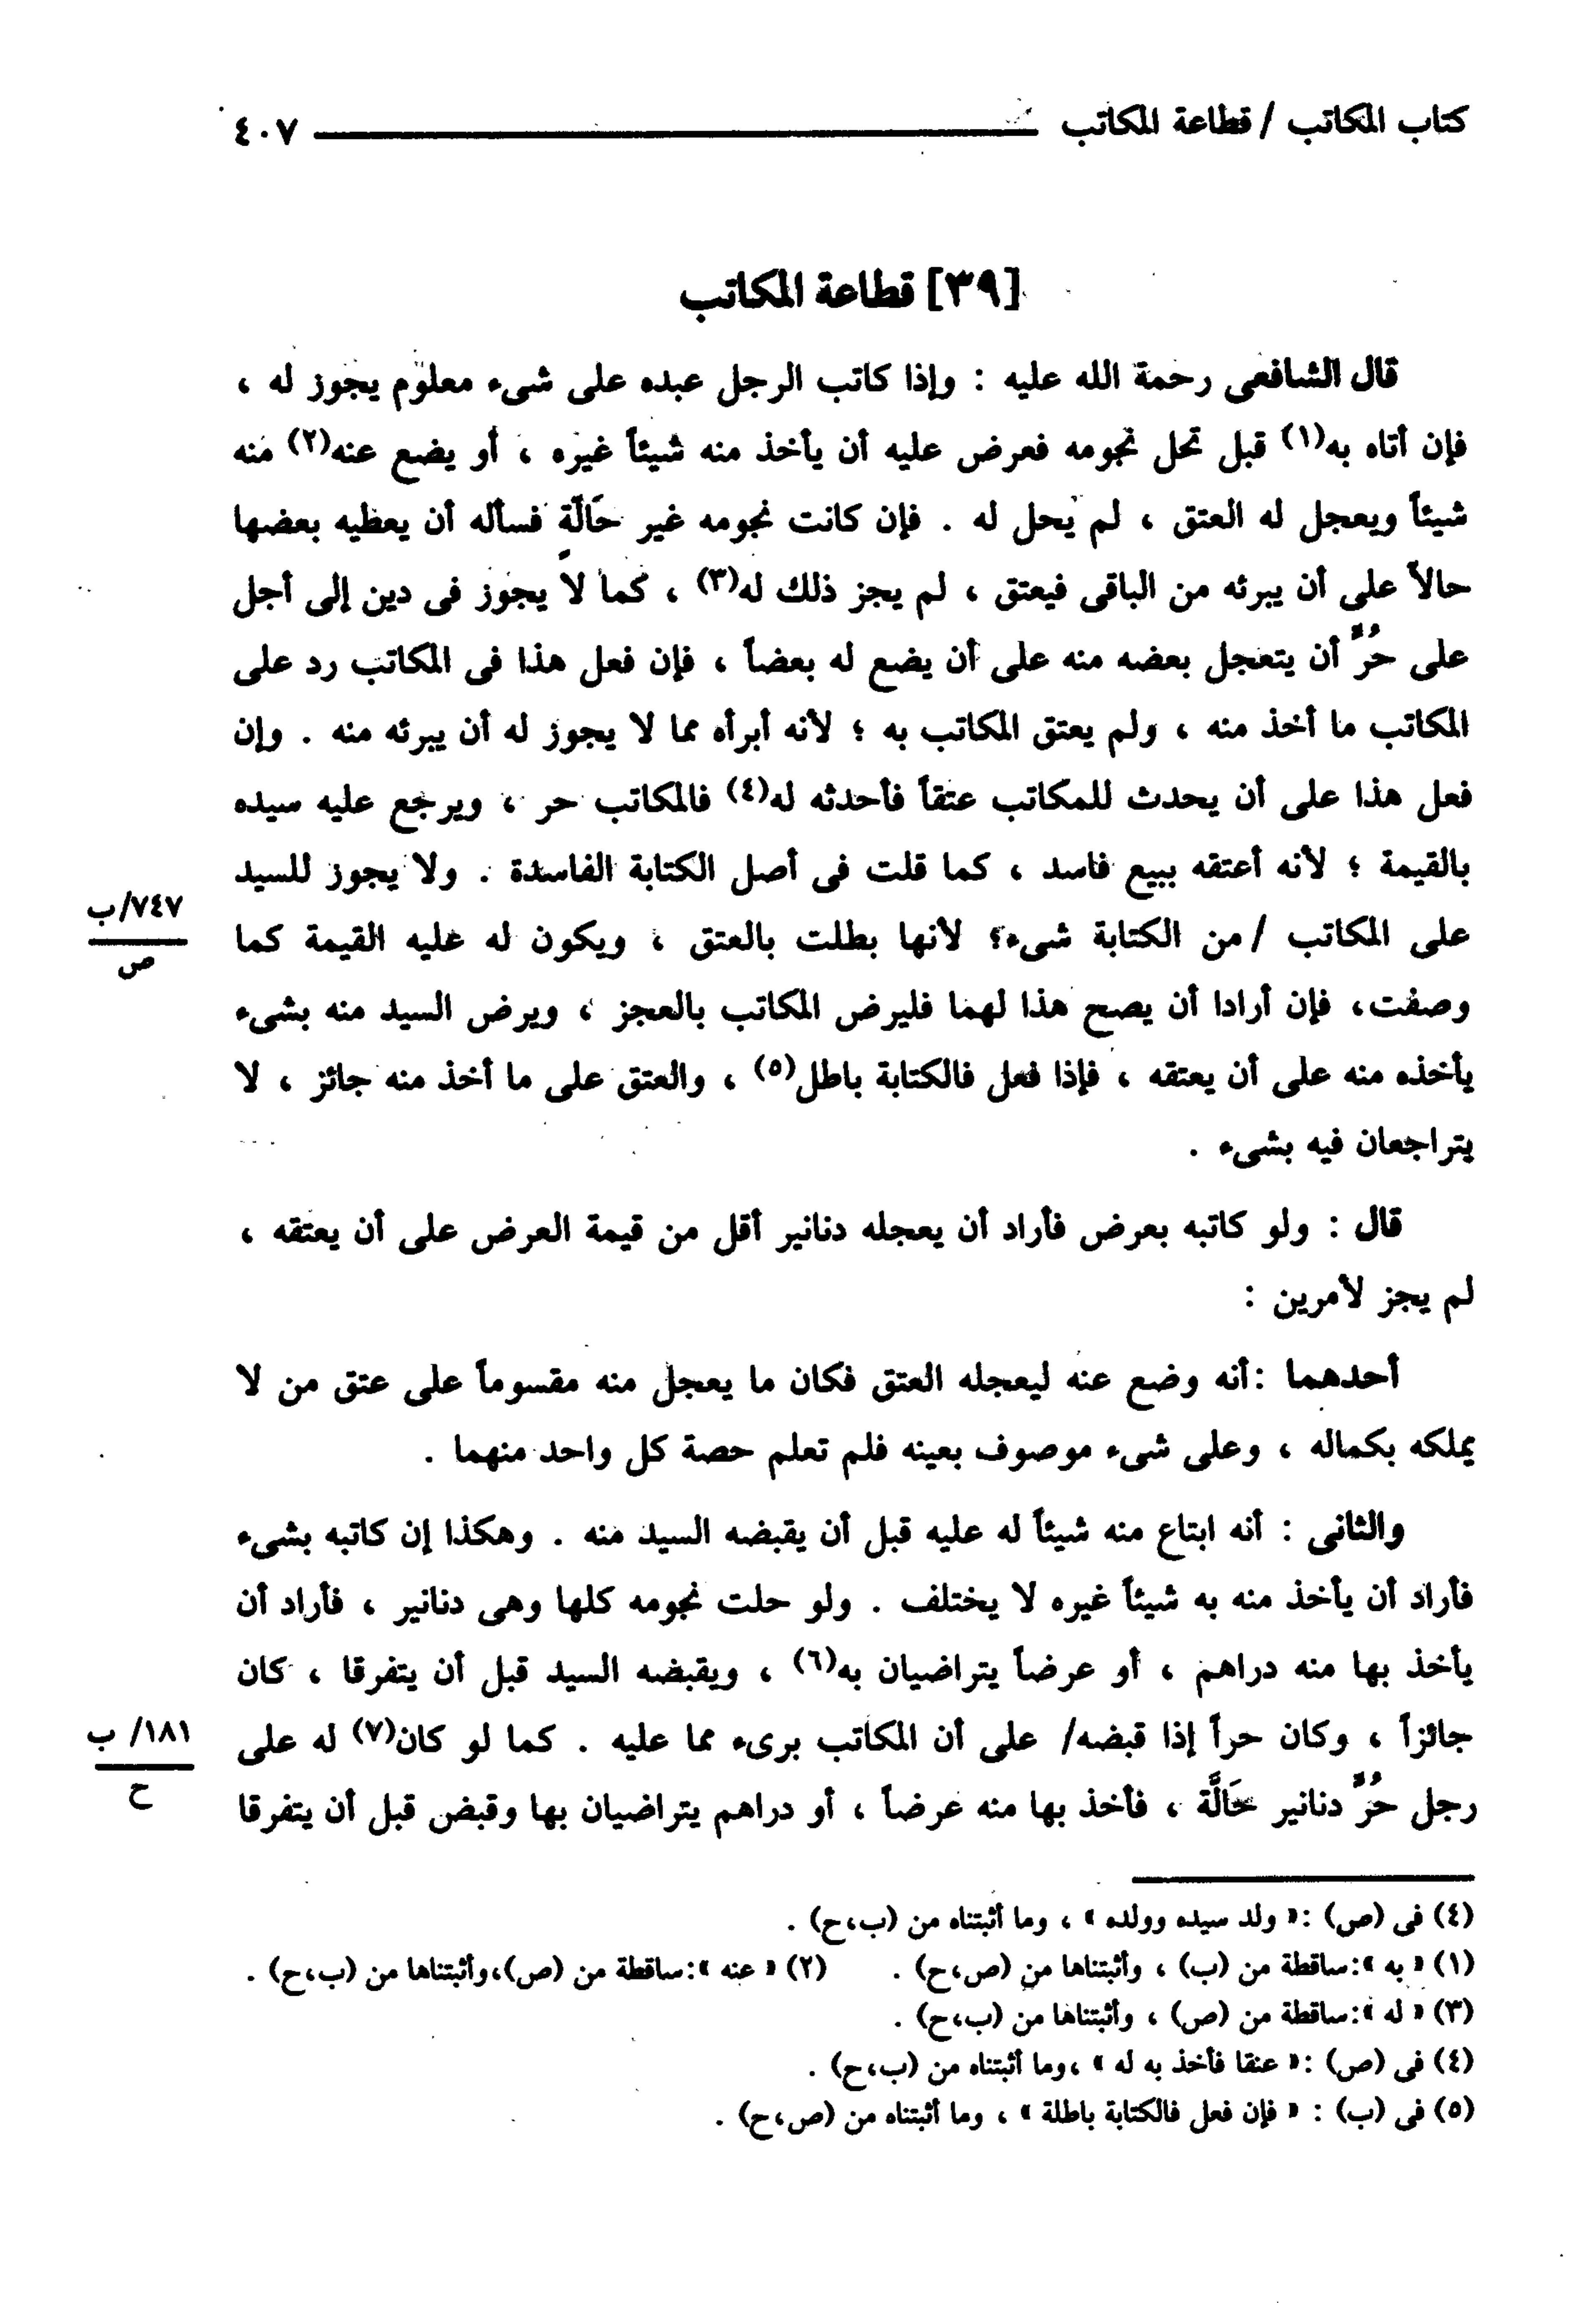 كتاب المكاتب / قطاعة المكاتب ٤٠٧
[٣٩] قطاعة المكاتب
قال الشافعى رحمة الله عليه : وإذا كاتب الرجل عبده على شىء معلوم يجوز له ،
فإن أتاه به(١) قبل تحل نجومه فعرض عليه أن يأخذ منه شيئاً غيره ، أو يضع عنه(٢) منه
شيئاً ويعجل له العتق ، لم يحل له . فإن كانت نجومه غير حَالَّة فسأله أن يعطيه بعضها
حالاً على أن يبرئه من الباقى فيعتق ، لم يجز ذلك له(٣) ، كما لا يجوز فى دين إلى أجل
على حُرٍّ أن يتعجل بعضه منه على أن يضع له بعضاً ، فإن فعل هذا فى المكاتب رد على
المكاتب ما أخذ منه ، ولم يعتق المكاتب به ؛ لأنه أبرأه مما لا يجوز له أن يبرئه منه . وإن
فعل هذا على أن يحدث للمكاتب عتقاً فأحدثه له(٤) فالمكاتب حر ، ويرجع عليه سيده
بالقيمة ؛ لأنه أعتقه ببيع فاسد ، كما قلت فى أصل الكتابة الفاسدة . ولا يجوز للسيد
على المكاتب / من الكتابة شىء؛ لأنها بطلت بالعتق ، ويكون له عليه القيمة كما
٧٤٧/ب
ص
وصفت، فإن أرادا أن يصح هذا لهما فليرض المكاتب بالعجز ، ويرض السيد منه بشىء
يأخذه منه على أن يعتقه ، فإذا فعل فالكتابة باطل(٥) ، والعتق على ما أخذ منه جائز ، لا
يتراجعان فيه بشىء .
قال : ولو كاتبه بعرض فأراد أن يعجله دنانير أقل من قيمة العرض على أن يعتقه ،
لم يجز لأمرين :
أحدهما :أنه وضع عنه ليعجله العتق فكان ما يعجل منه مقسوماً على عتق من لا
يملكه بكماله ، وعلى شىء موصوف بعينه فلم تعلم حصة كل واحد منهما .
والثانى : أنه ابتاع منه شيئاً له عليه قبل أن يقبضه السيد منه . وهكذا إن كاتبه بشىء
فأراد أن يأخذ منه به شيئاً غيره لا يختلف . ولو حلت نجومه كلها وهى دنانير ، فأراد أن
يأخذ بها منه دراهم ، أو عرضاً يتراضيان به(٦) ، ويقبضه السيد قبل أن يتفرقا ، كان
جائزاً ، وكان حراً إذا قبضه/ على أن المكاتب برىء مما عليه . كما لو كان(٧) له على
١٨١/ ب
ح
رجل حُرٍّ دنانير حَالَّة ، فأخذ بها منه عرضاً ، أو دراهم يتراضيان بها وقبض قبل أن يتفرقا
(٤) فى (ص) :« ولد سيده وولده » ، وما أثبتناه من (ب،ح) .
(١) « به »:ساقطة من (ب) ، وأثبتناها من (ص،ح) . (٢) « عنه »:ساقطة من (ص)،وأثبتناها من (ب،ح) .
(٣) « له »:ساقطة من (ص) ، وأثبتناها من (ب،ح) .
(٤) فى (ص) :« عتقا فأخذ به له » ،وما أثبتناه من (ب،ح) .
(٥) فى (ب) : « فإن فعل فالكتابة باطلة » ، وما أثبتناه من (ص،ح) .